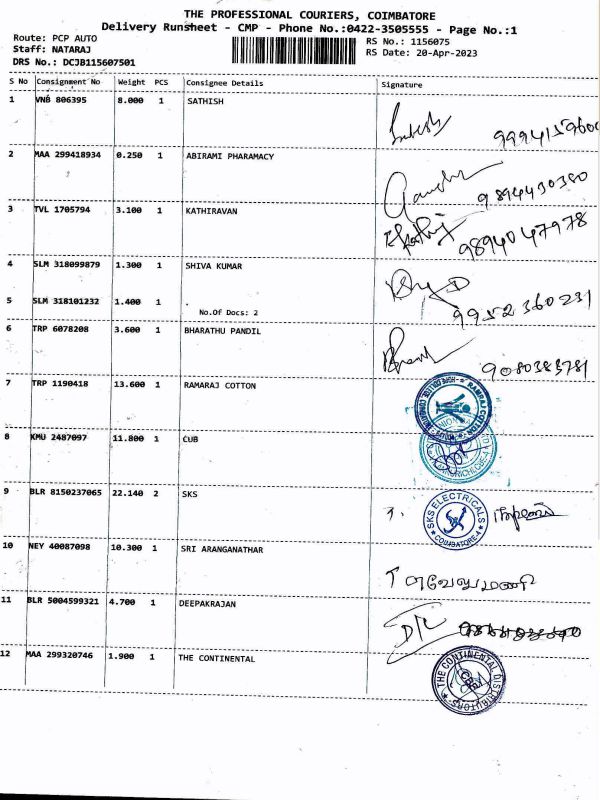 THE PROFESSIONAL COURIERS, COIMBATORE
Delivery Runsheet - CMP - Phone No.:0422-3505555 - Page No.:1
Route: PCP AUTO
RS No.: 1156075
Staff: NATARAJ
RS Date: 20-Apr-2023
DRS No.: DCJB115607501
S No Consignment No Weight PCS Consignee Details Signature
1 VNB 806395 8.000 1 SATHISH
9994159600
2 MAA 299418934 0.250 1 ABIRAMI PHARAMACY
9894430380
3 TVL 1705794 3.100 1 KATHIRAVAN
9894047978
4 SLM 318099879 1.300 1 SHIVA KUMAR
5 SLM 318101232 1.400 1 .
No.Of Docs: 2
9952360231
6 TRP 6078208 3.600 1 BHARATHU PANDIL
9080383781
7 TRP 1190418 13.600 1 RAMARAJ COTTON
RAMRAJ COTTON
8 KMU 2487097 11.800 1 CUB
9 BLR 8150237065 22.140 2 SKS
SKS ELECTRICALS
COIMBATORE-4
10 NEY 40087098 10.300 1 SRI ARANGANATHAR
வேலுமணி
11 BLR 5004599321 4.700 1 DEEPAKRAJAN
12 MAA 299320746 1.900 1 THE CONTINENTAL
THE CONTINENTAL DISTRIBUTORS
CBE